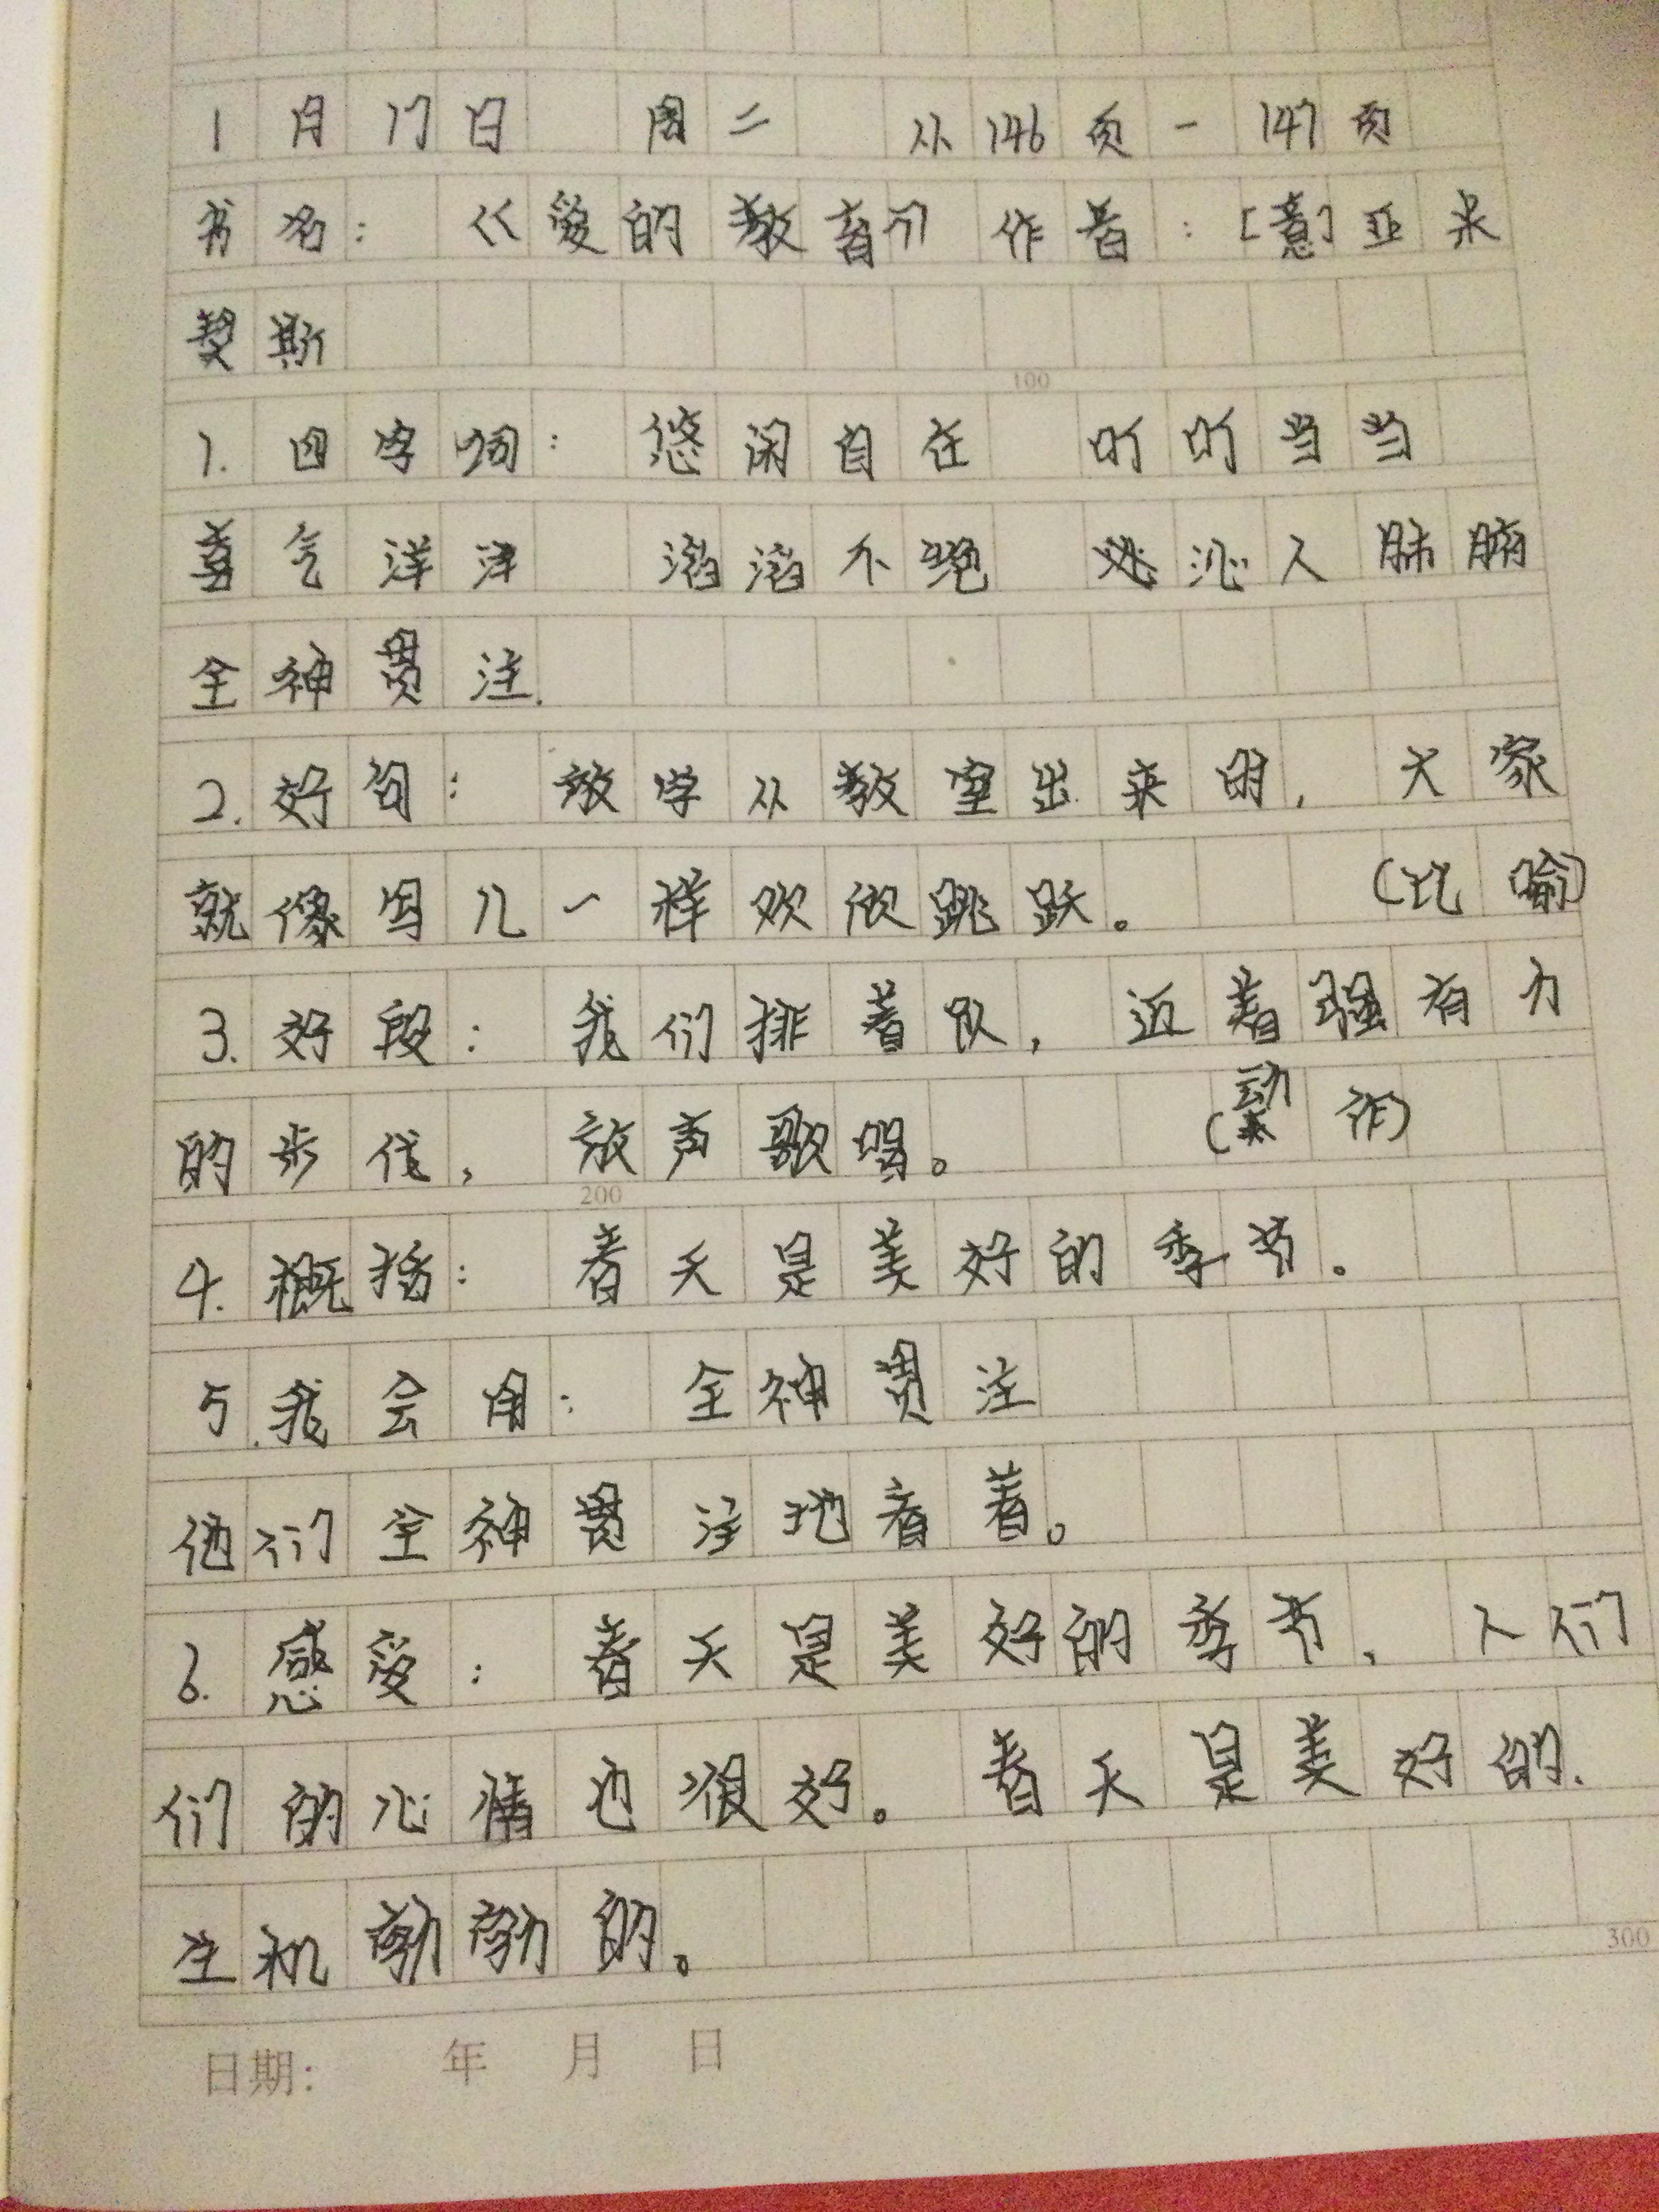 1月17日 周二 从146页－147页
书名：《爱的教育》作者：[意]亚米
契斯
100
1.四字词：悠闲自在 叮叮当当
喜气洋洋 滔滔不绝 沁人肺腑
全神贯注.
2.好句：放学从教室出来的，大家
就像鸟儿一样欢欣跳跃。（比喻）
3.好段：我们排着队，迈着强有力
的步伐，放声歌唱。（动作）
200
4.概括：春天是美好的季节。
5.我会用：全神贯注
他们全神贯注地看着。
6.感受：春天是美好的季节，人们
们的心情也很好。春天是美好的.
生机勃勃的。
300
日期： 年 月 日